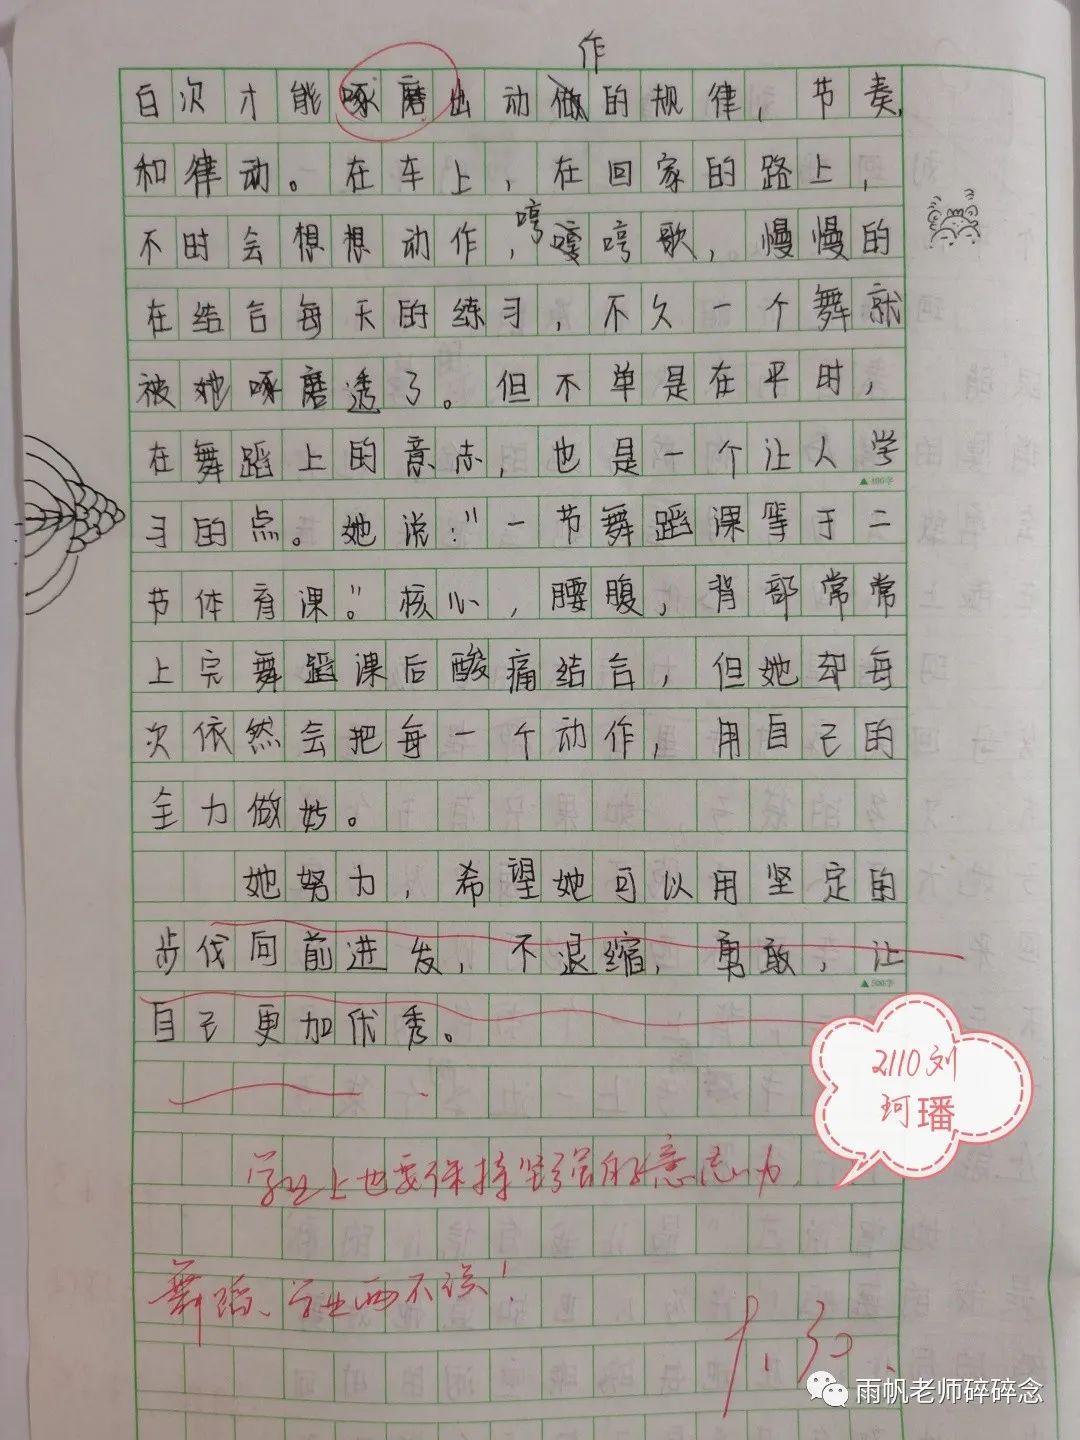 作
百次才能啄磨出动做的规律，节奏，
和律动。在车上，在回家的路上，
不时会想想动作，哼哼歌，慢慢的
在结合每天的练习，不久一个舞就
被她啄磨透了。但不单是在平时，
在舞蹈上的意志，也是一个让人学
▲400字
习的点。她说："一节舞蹈课等于二
节体育课。"核心，腰腹，背部常常
上完舞蹈课后酸痛结合，但她却每
次依然会把每一个动作，用自己的
全力做好。
她努力，希望她可以用坚定的
步伐向前进发，不退缩，勇敢，让
▲500字
自己更加优秀。
2110刘
珂璠
学业上也要保持坚强的意志力
舞蹈、学业两不误！
9.30.
雨帆老师碎碎念